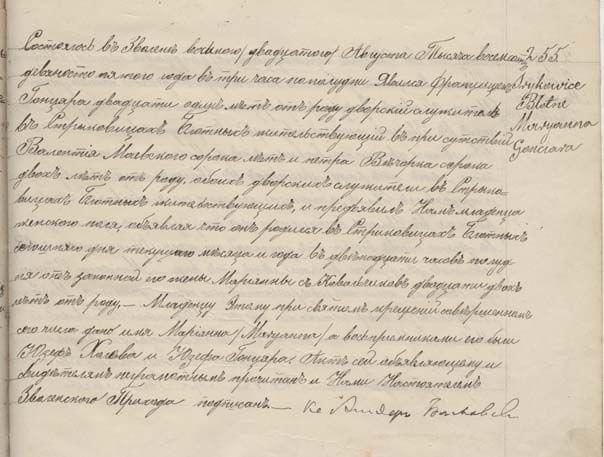 Состоялось въ Зволенѣ восьмого/двадцатого/ Августа Тысяча восемсотъ 255.
девяносто пятого года въ три часа по полудни Явился Францишекъ Strykowice
Гончара двадцати одинъ лѣтъ отъ роду дворскій служитель Błotne
въ Стриковицахъ Блотныхъ жительствующій въ присутствій Maryanna
Валентія Маевского сорока лѣтъ и петра сорока Gonciara
двохъ лѣтъ отъ роду, обоихъ дворскихъ служители въ Стрыко-
вицахъ Блотныхъ жительствующихъ, и предъявилъ Намъ младенца
женского пола, объявляя что онъ родился въ Стриковицахъ Блотныхъ
дня текущаго мѣсяца и года въ двѣнадцати часовъ полуд-
ня отъ законной его жены Маріанны съ Ковальчиковъ двадцати двохъ
лѣтъ отъ роду,— Младенцу Этому при святомъ крещеніи совершенномъ
сего числа дано имя Маріанна/Maryanna/ а воспріемниками его были
Юзефъ и Юзефа Гончара. Актъ сей объявляющему и
свидѣтелямъ неграмотнымъ прочитанъ и Нами Настоятелемъ
Зволенского Прихода подписанъ—